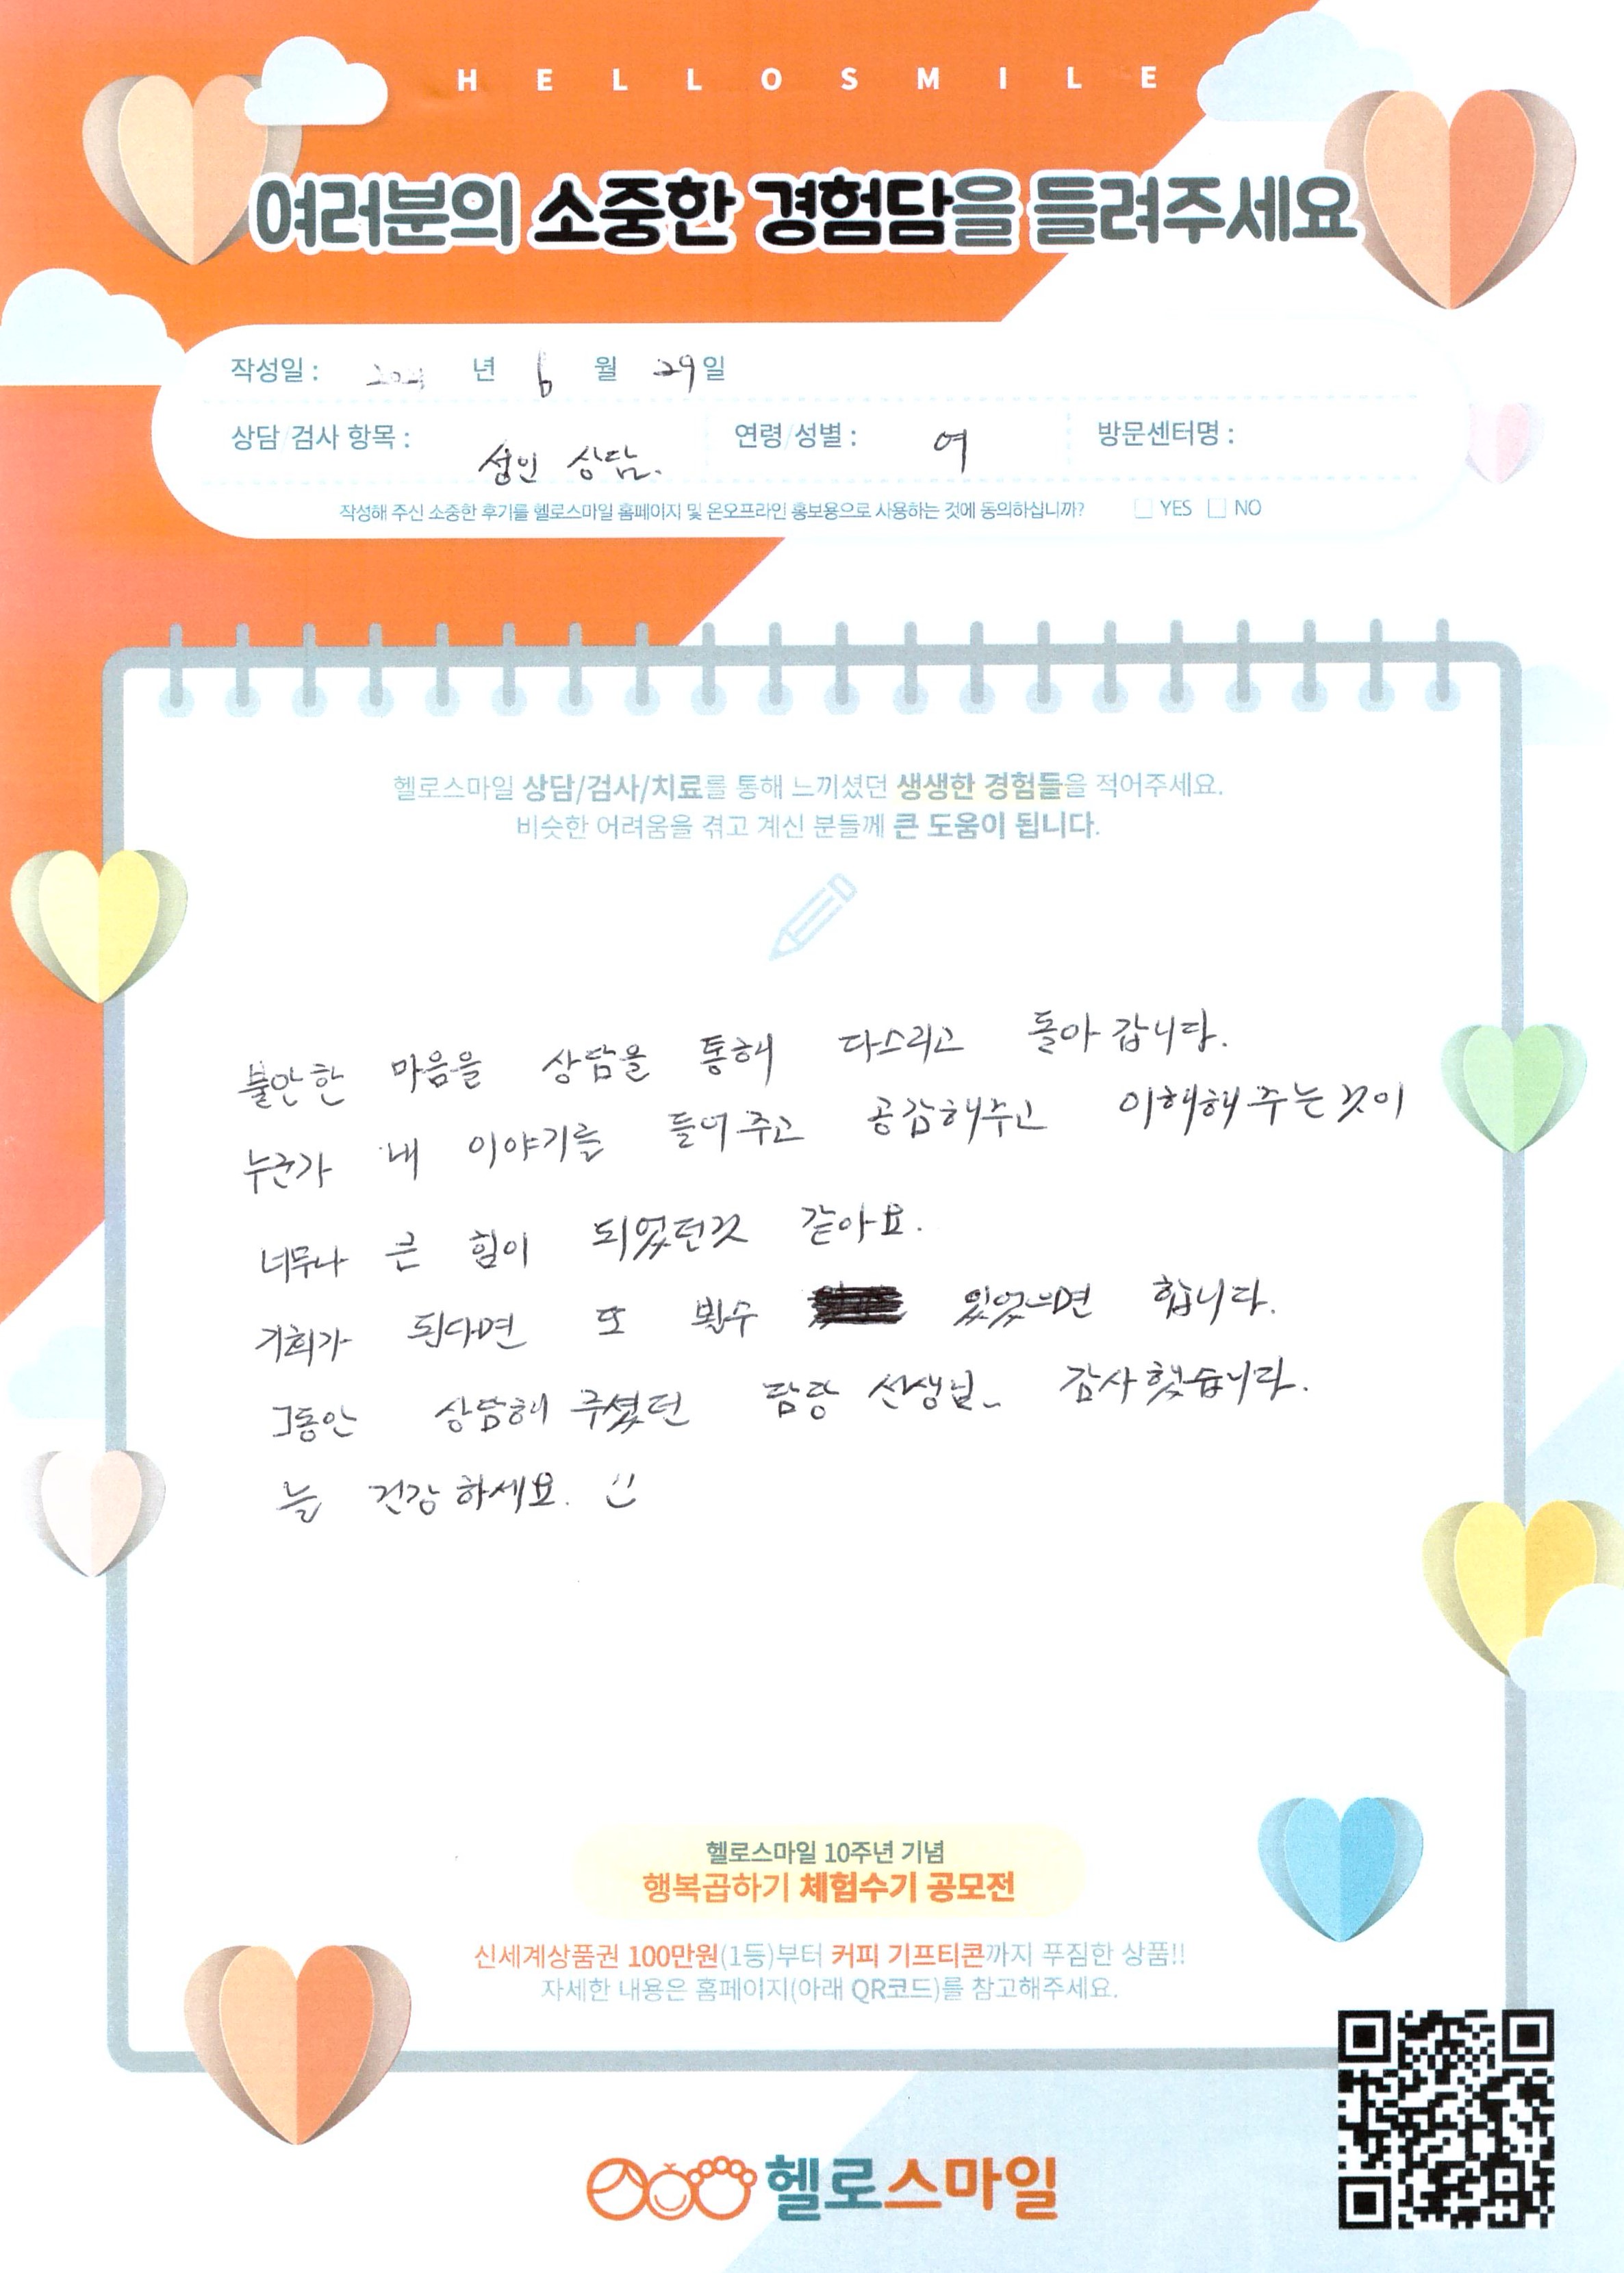 HELLOSMILE
여러분의 소중한 경험담을 들려주세요
작성일 : 년 6 월 29일
상담/검사 항목 : 성인 상담. 연령/성별 : 여 방문센터명 :
작성해 주신 소중한 후기를 헬로스마일 홈페이지 및 온오프라인 홍보용으로 사용하는 것에 동의하십니까? YES NO
헬로스마일 상담/검사/치료를 통해 느끼셨던 생생한 경험들을 적어주세요.
비슷한 어려움을 겪고 계신 분들께 큰 도움이 됩니다.
불안한 마음을 상담을 통해 다스리고 돌아 갑니다.
누군가 내 이야기를 들어주고 공감해주고 이해해 주는 것이
너무나 큰 힘이 되었던것 같아요.
기회가 된다면 또 뵐수 있었으면 합니다.
그동안 상담해 주셨던 담당 선생님.. 감사했습니다.
늘 건강하세요.
헬로스마일 10주년 기념
행복곱하기 체험수기 공모전
신세계상품권 100만원(1등)부터 커피 기프티콘까지 푸짐한 상품!!
자세한 내용은 홈페이지(아래 QR코드)를 참고해주세요.
헬로스마일